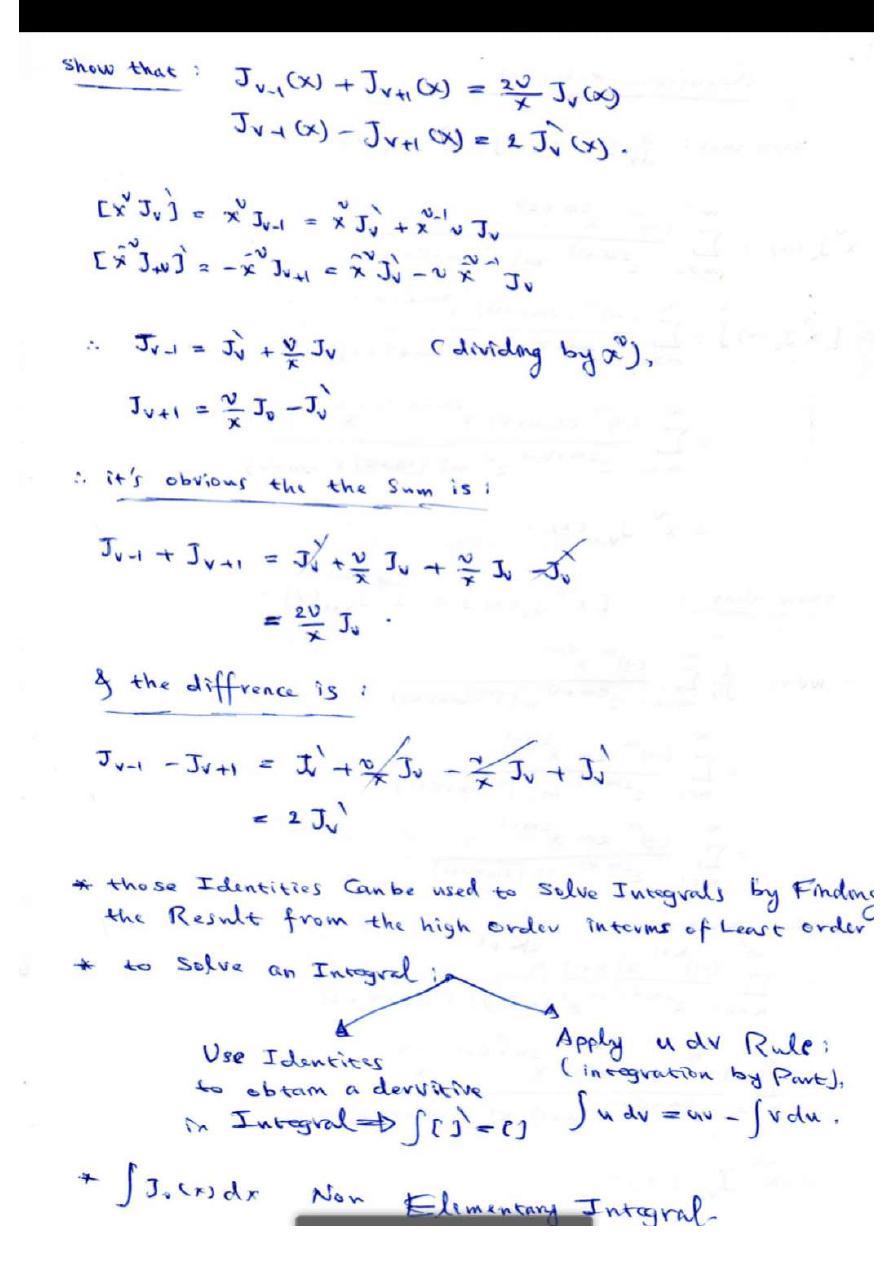 Show that : J_{ν-1}(x) + J_{ν+1}(x) = 2ν/x J_ν(x)
J_{ν-1}(x) - J_{ν+1}(x) = 2 J_ν`(x) .
[x^ν J_ν]` = x^ν J_{ν-1} = x^ν J_ν` + x^{ν-1} ν J_ν
[x^{-ν} J_{+ν}]` = -x^{-ν} J_{ν+1} = x^{-ν} J_ν` - ν x^{-ν-1} J_ν
∴ J_{ν-1} = J_ν` + ν/x J_ν (dividing by x^ν),
J_{ν+1} = ν/x J_ν - J_ν`
∴ it's obvious the the Sum is :
J_{ν-1} + J_{ν+1} = J_ν` + ν/x J_ν + ν/x J_ν - J_ν`
= 2ν/x J_ν .
& the diffrence is :
J_{ν-1} - J_{ν+1} = J_ν` + ν/x J_ν - ν/x J_ν + J_ν`
= 2 J_ν`
* those Identities Canbe used to Solve Integrals by Finding
the Result from the high order interms of Least order
* to Solve an Integral :
Use Identites
to obtam a dervitive
in Integral ⇒ ∫[ ]` = [ ]
Apply u dv Rule :
(integration by Part),
∫ u dv = uv - ∫ v du .
* ∫ J₀(x) dx Non Elimentary Integral.